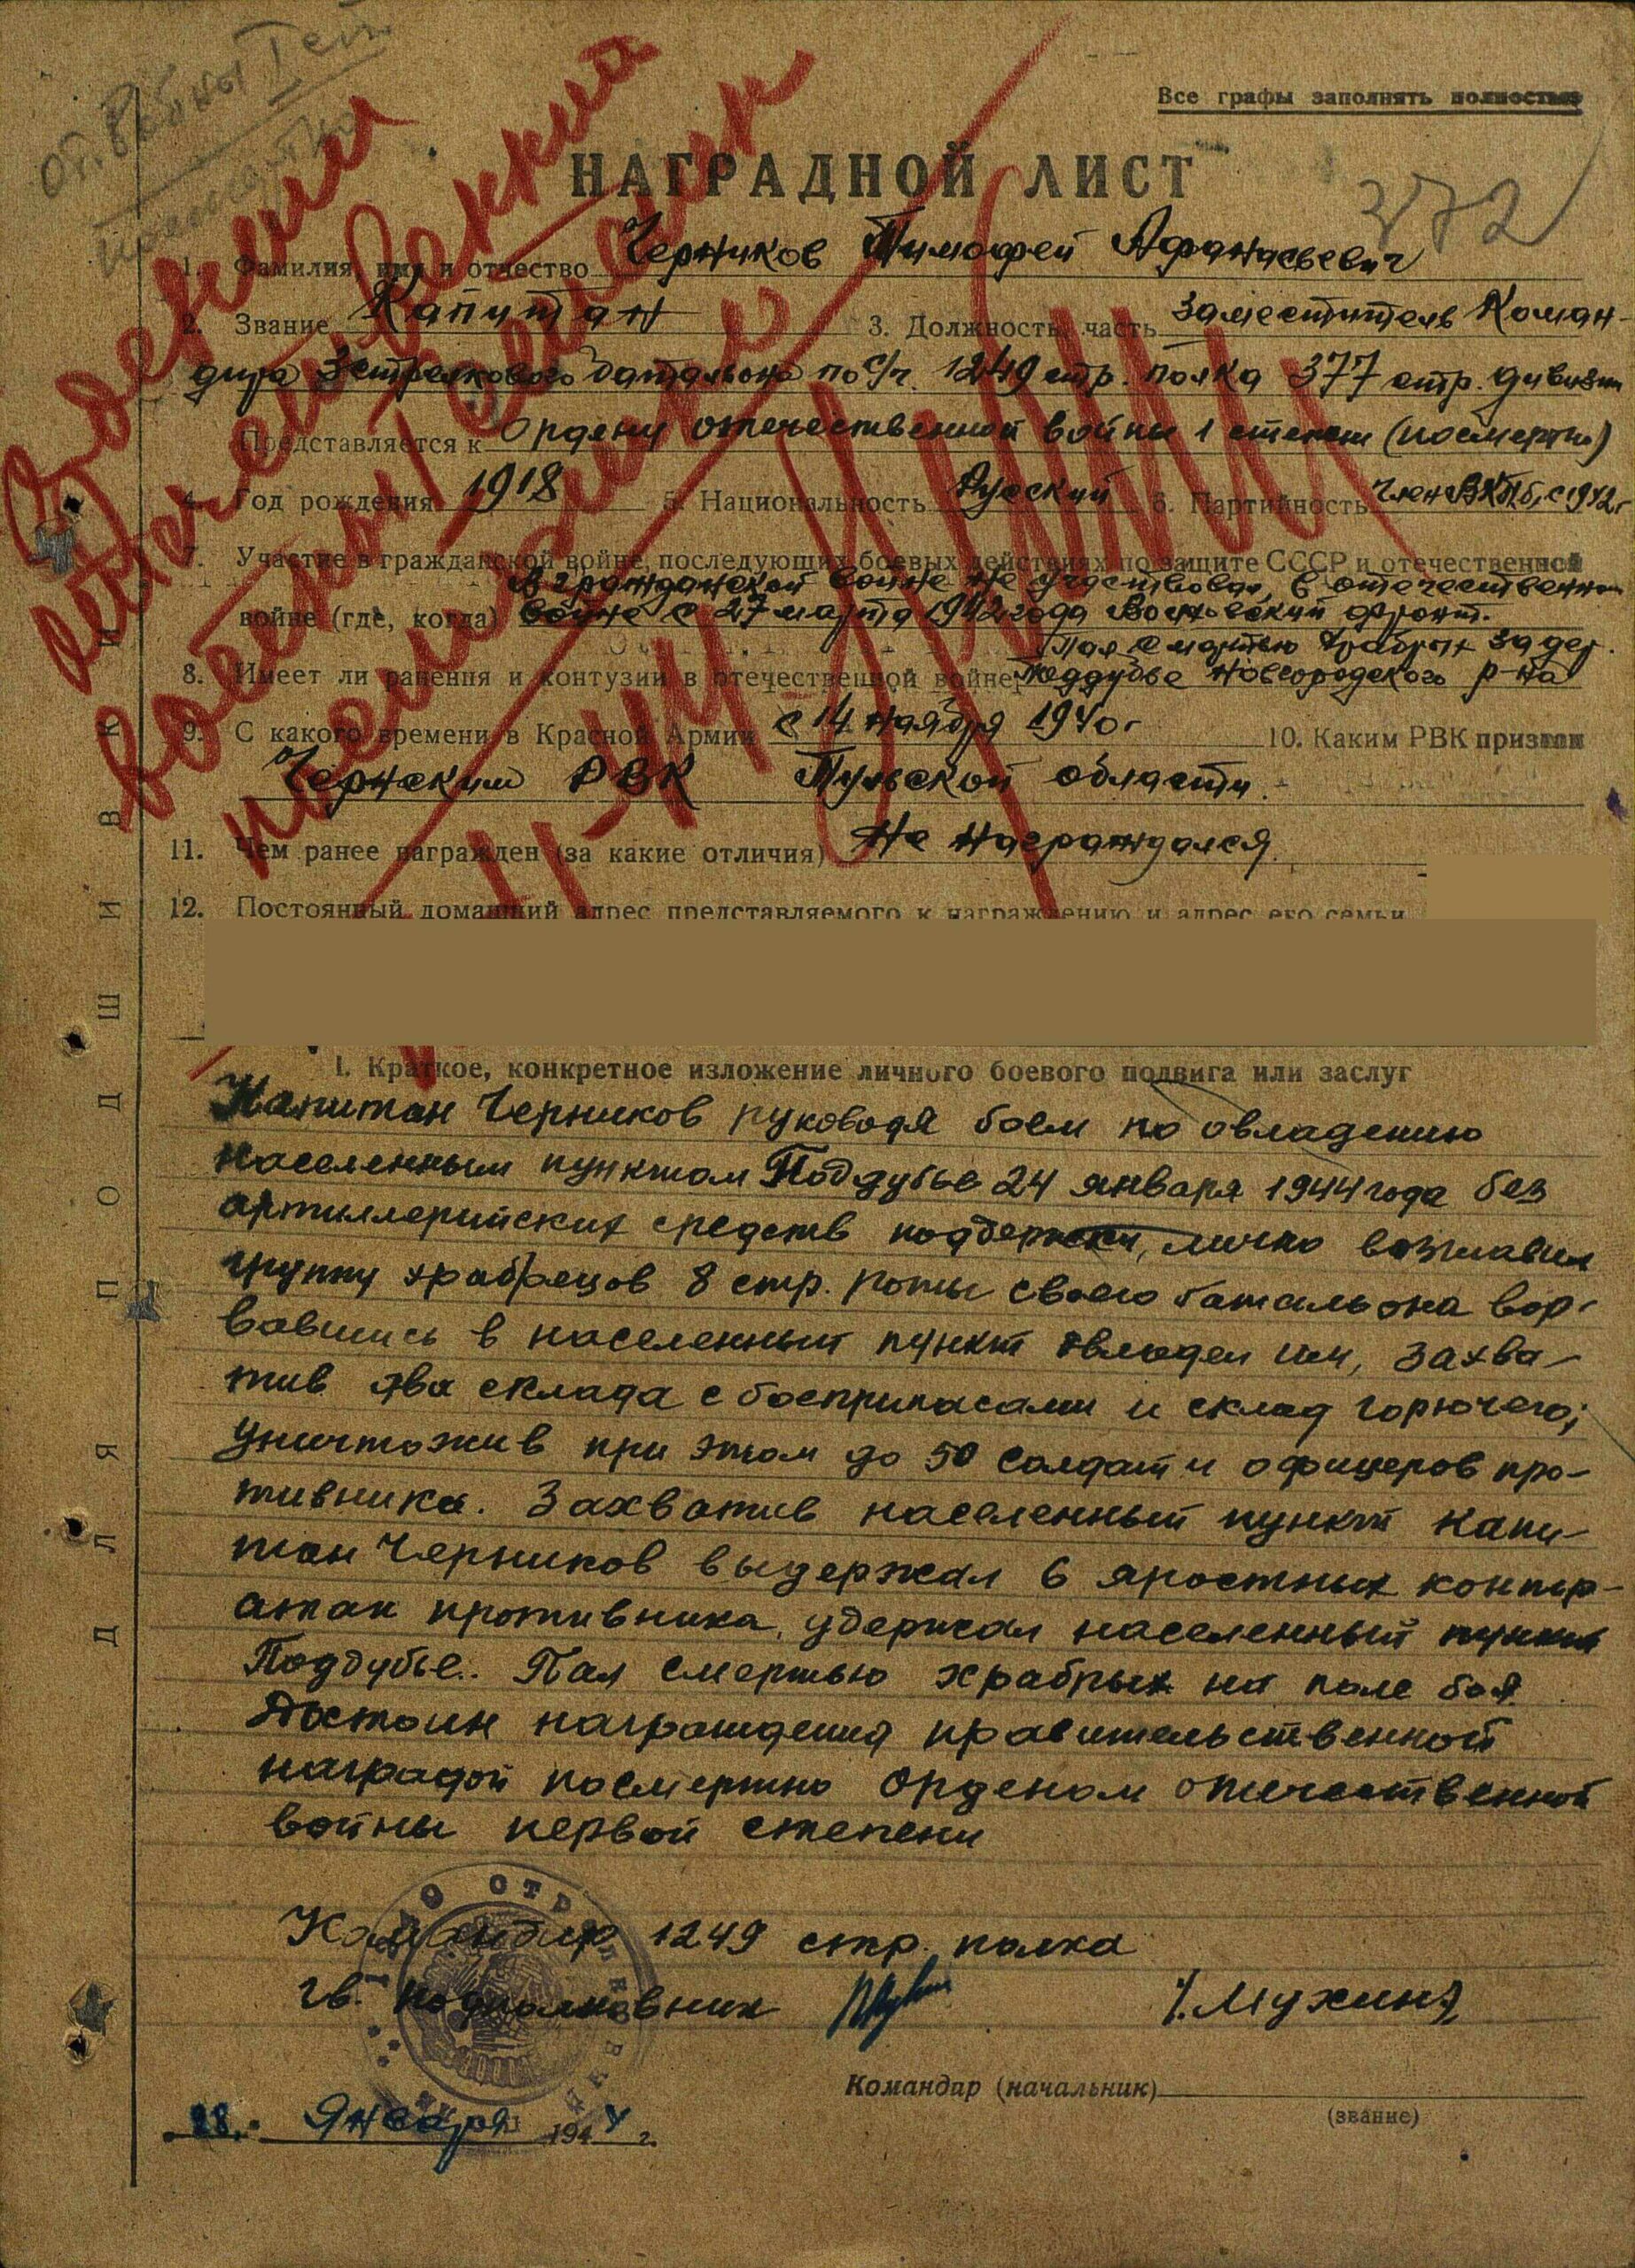 От. Войны I ст.
Все графы заполнять полностью
НАГРАДНОЙ ЛИСТ
372
1. Фамилия, имя и отчество Черников Тимофей Афанасьевич
2. Звание Капитан 3. Должность, часть Заместитель Коман-
дира 3 стрелкового батальона по с/ч. 1249 стр. полка 377 стр. дивизии
Представляется к Ордену отечественной войны 1 степени (посмертно)
4. Год рождения 1918 5. Национальность Русский 6. Партийность Член ВКП(б) с 1942 г
7. Участие в гражданской войне, последующих боевых действиях по защите СССР и отечественной
В гражданской войне не участвовал, в отечественной
войне (где, когда) войне с 27 марта 1942 года Волховский фронт.
Пал смертью храбрых за дер.
8. Имеет ли ранения и контузии в отечественной войне Поддубье Новгородского р-на
9. С какого времени в Красной Армии с 14 ноября 1940 г 10. Каким РВК призван
Чернским РВК Тульской области.
11. Чем ранее награжден (за какие отличия) Не награждался.
12. Постоянный домашний адрес представляемого к награждению и адрес его семьи
I. Краткое, конкретное изложение личного боевого подвига или заслуг
Капитан Черников руководя боем по овладению
населенным пунктом Поддубье 24 января 1944 года без
артиллерийских средств поддержки, лично возглавил
группу храбрецов 8 стр. роты своего батальона вор-
вавшись в населенный пункт овладел им, захва-
тив два склада с боеприпасами и склад горючего;
уничтожив при этом до 50 солдат и офицеров про-
тивника. Захватив населенный пункт капи-
тан Черников выдержал 6 яростных контр-
атак противника, удержал населенный пункт
Поддубье. Пал смертью храбрых на поле боя.
Достоин награждения правительственной
наградой посмертно Орденом отечественной
войны первой степени
Командир 1249 стр. полка
гв. подполковник /Мухин/
Командир (начальник)
(звание)
28. Января 1944 г.
ДЛЯ ПОДШИВКИ